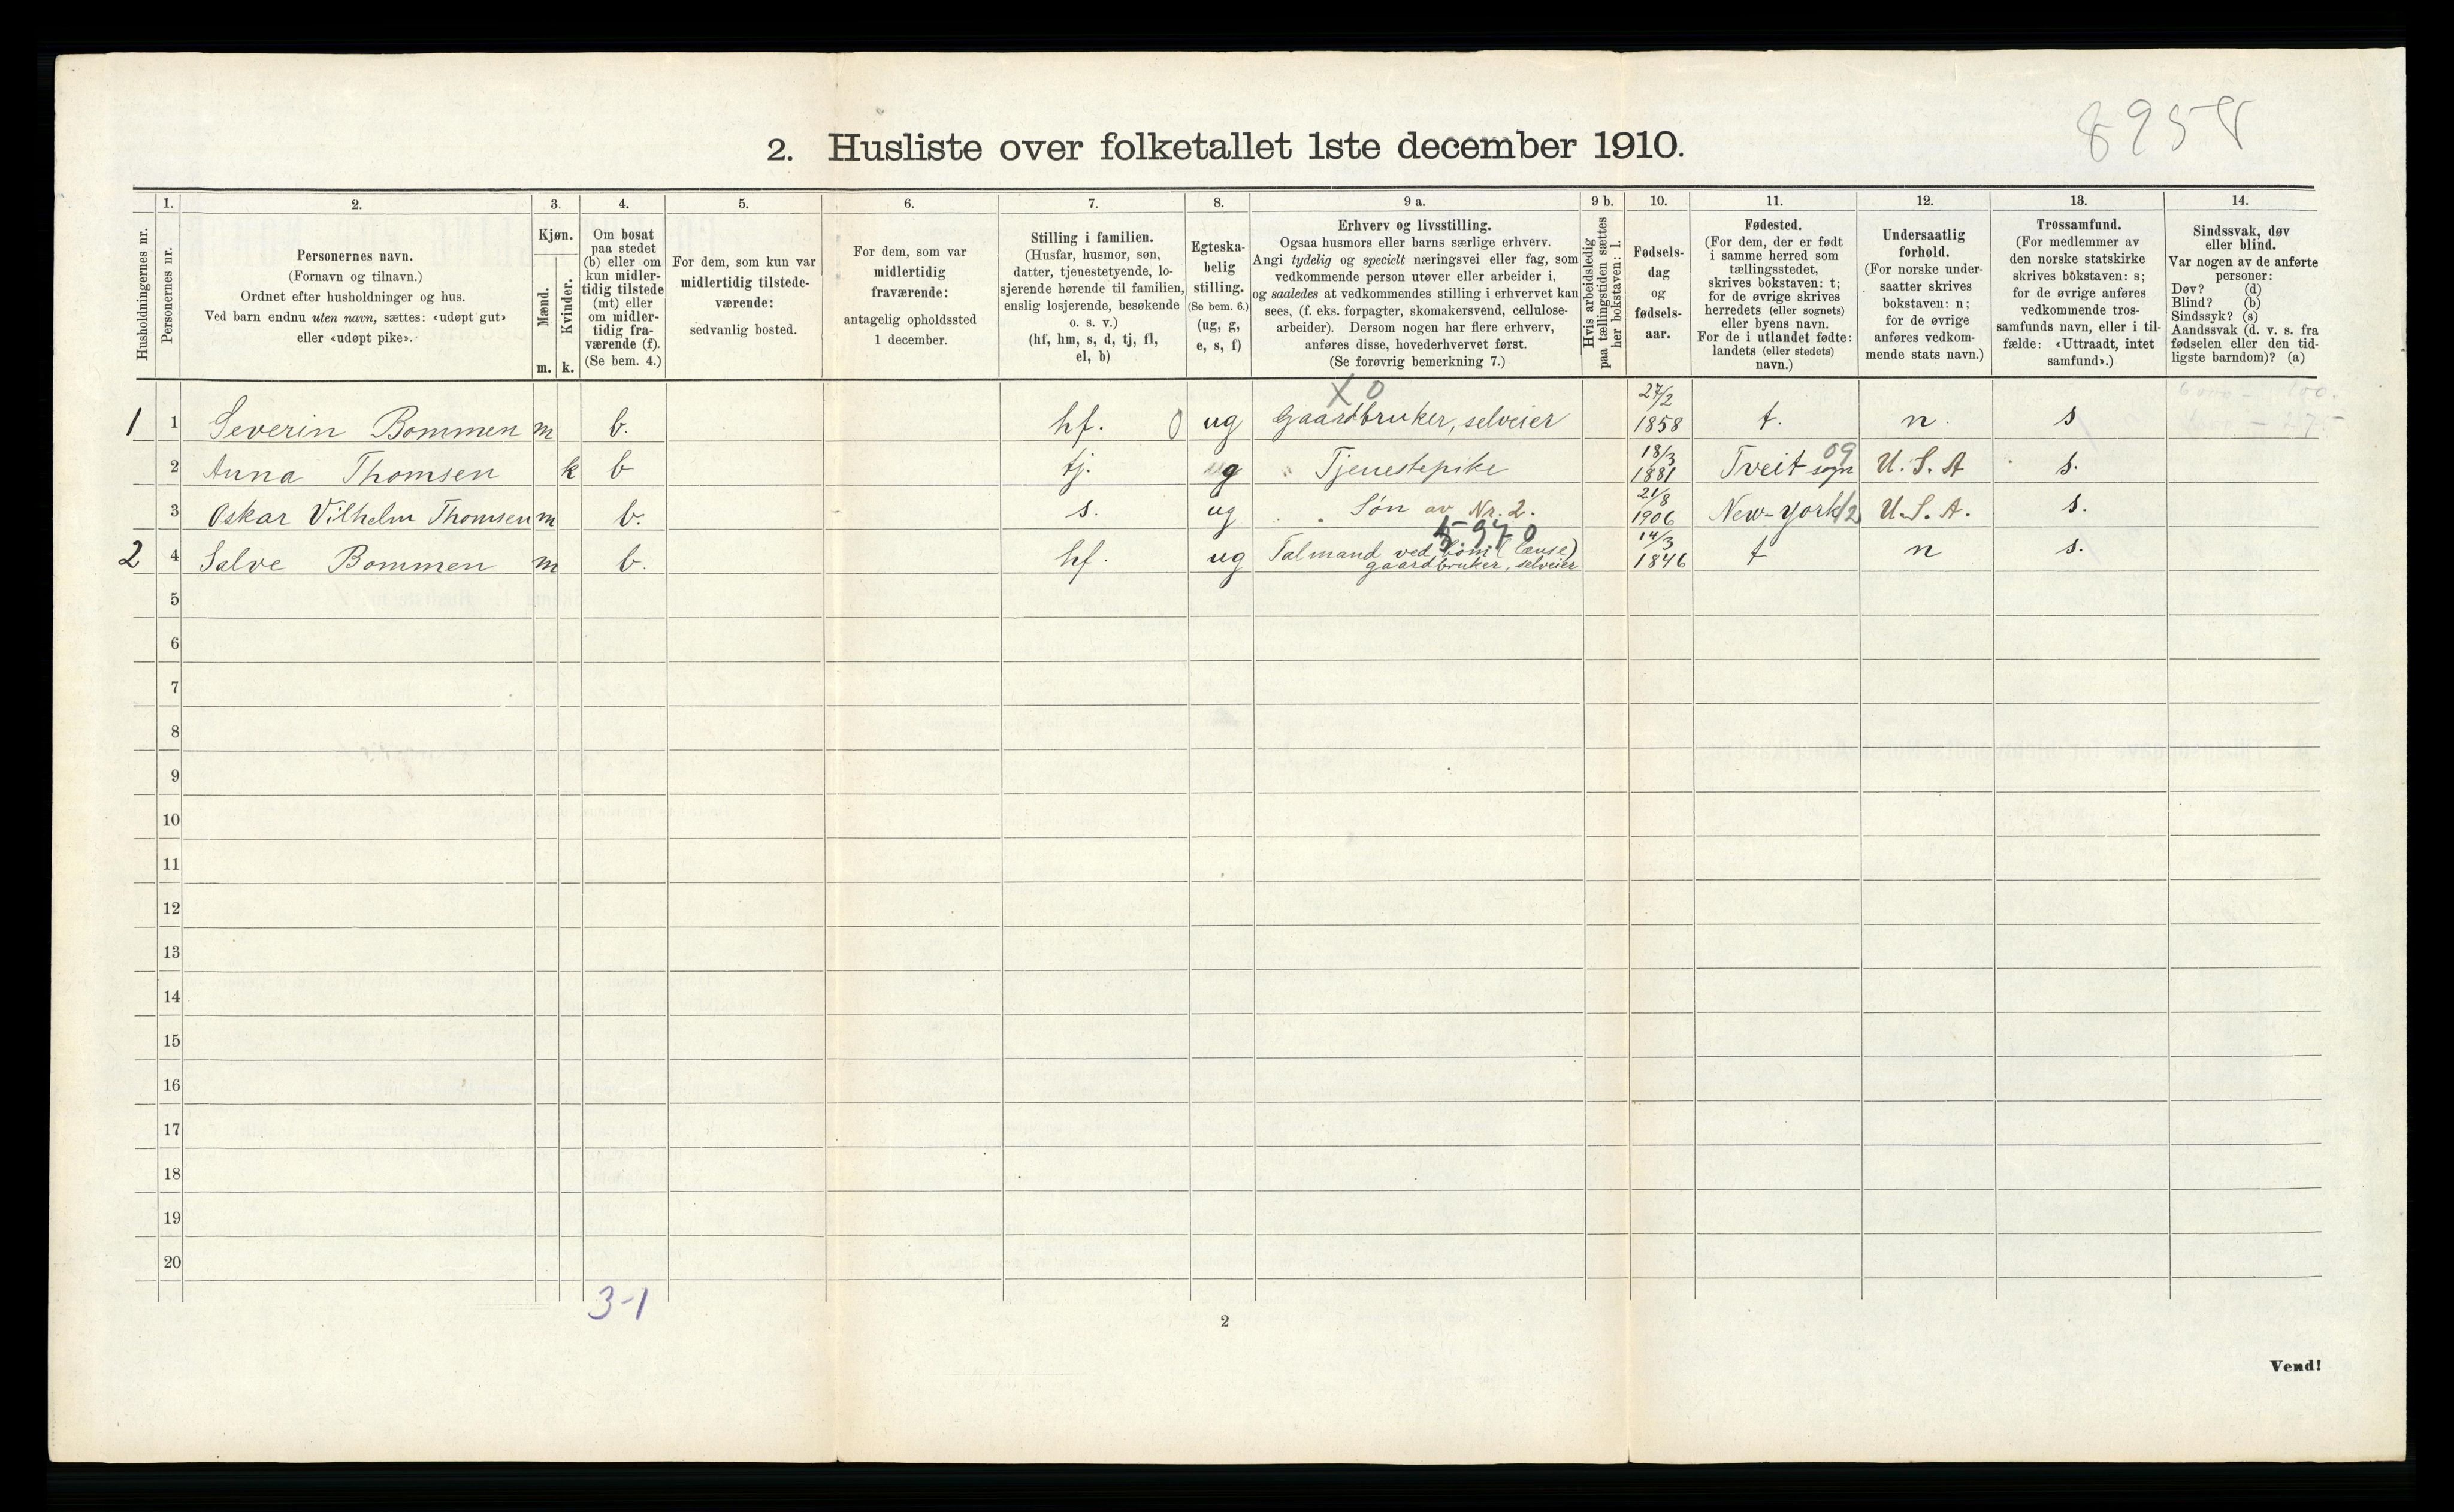 8958
2. Husliste over folketallet 1ste december 1910.
Husholdningernes nr.
1.
Personernes nr.
2.
Personernes navn.
(Fornavn og tilnavn.)
Ordnet efter husholdninger og hus.
Ved barn endnu uten navn, sættes: «udøpt gut»
eller «udøpt pike».
3.
Kjøn.
Mænd.
Kvinder.
m. k.
4.
Om bosat
paa stedet
(b) eller om
kun midler-
tidig tilstede
(mt) eller
om midler-
tidig fra-
værende (f).
(Se bem. 4.)
5.
For dem, som kun var
midlertidig tilstede-
værende:
sedvanlig bosted.
6.
For dem, som var
midlertidig
fraværende:
antagelig opholdssted
1 december.
7.
Stilling i familien.
(Husfar, husmor, søn,
datter, tjenestetyende, lo-
sjerende hørende til familien,
enslig losjerende, besøkende
o. s. v.)
(hf, hm, s, d, tj, fl,
el, b)
8.
Egteska-
belig
stilling.
(Se bem. 6.)
(ug, g,
e, s, f)
9 a.
Erhverv og livsstilling.
Ogsaa husmors eller barns særlige erhverv.
Angi tydelig og specielt næringsvei eller fag, som
vedkommende person utøver eller arbeider i,
og saaledes at vedkommendes stilling i erhvervet kan
sees, (f. eks. forpagter, skomakersvend, cellulose-
arbeider). Dersom nogen har flere erhverv,
anføres disse, hovederhvervet først.
(Se forøvrig bemerkning 7.)
9 b.
Hvis arbeidsledig
paa tællingstiden sættes
her bokstaven: l.
10.
Fødsels-
dag
og
fødsels-
aar.
11.
Fødested.
(For dem, der er født
i samme herred som
tællingsstedet,
skrives bokstaven: t;
for de øvrige skrives
herredets (eller sognets)
eller byens navn.
For de i utlandet fødte:
landets (eller stedets)
navn.)
12.
Undersaatlig
forhold.
(For norske under-
saatter skrives
bokstaven: n;
for de øvrige
anføres vedkom-
mende stats navn.)
13.
Trossamfund.
(For medlemmer av
den norske statskirke
skrives bokstaven: s;
for de øvrige anføres
vedkommende tros-
samfunds navn, eller i til-
fælde: «Uttraadt, intet
samfund».)
14.
Sindssvak, døv
eller blind.
Var nogen av de anførte
personer:
Døv? (d)
Blind? (b)
Sindssyk? (s)
Aandssvak (d. v. s. fra
fødselen eller den tid-
ligste barndom)? (a)
X 0
1 1 Severin Bommen m b. hf. 0 ug Gaardbruker, selveier 27/2 1858 t. n. s
2 Anna Thomsen k b tj. g Tjenestepike 18/3 1881 Tveit sogn 09 U. S. A s.
3 Oskar Vilhelm Thomsen m b. s. ug Søn av Nr. 2. 21/8 1906 New-York U. S. A. s.
2 4 Salve Bommen m b. hf. ug Talmand ved (lænse) 14/3 1846 t n s.
gaardbruker, selveier
5
6
7
8
9
10
11
12
13
14
15
16
17
18
19
20
3-1
2
Vend!